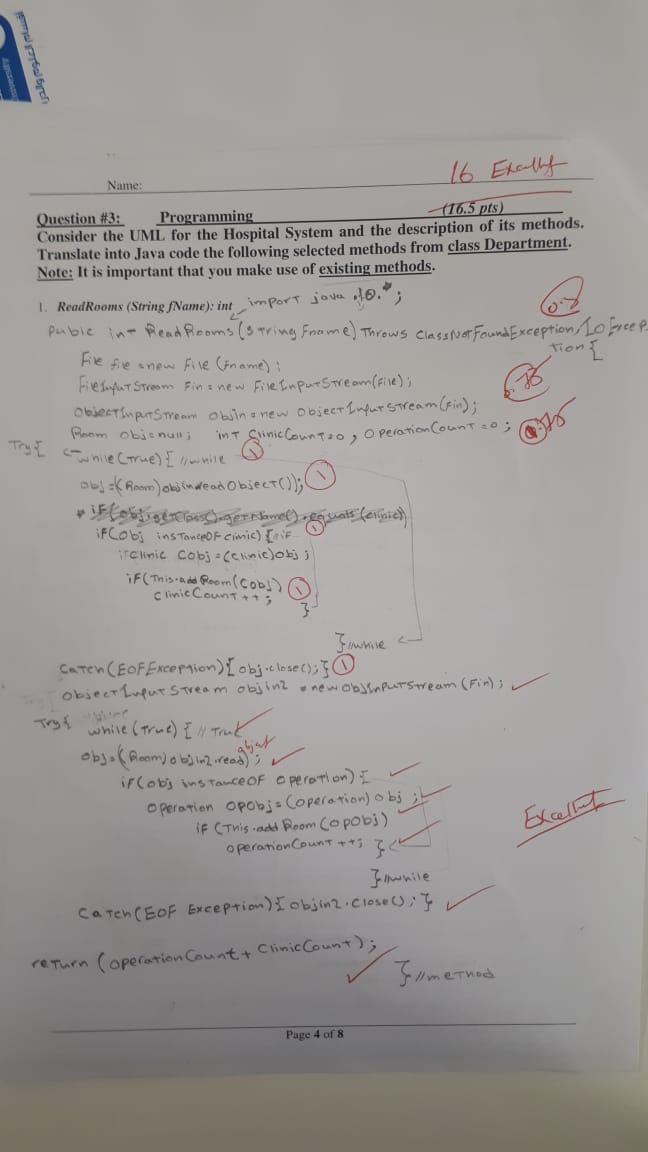 16 Excellent
Name:
Question #3: Programming (16.5 pts)
Consider the UML for the Hospital System and the description of its methods.
Translate into Java code the following selected methods from class Department.
Note: It is important that you make use of existing methods.
1. ReadRooms (String fName): int import java.io.*;
Public int ReadRooms(String Fname) Throws ClassNotFoundException, IOExcep
tion {
File file = new File (Fname);
FileInputStream Fin = new FileInputStream(File);
ObjectInputStream Objin = new ObjectInputStream(Fin);
Room Obj = null; int ClinicCount = 0, OperationCount = 0;
Try{ while(True){ //while 1
obj = (Room)objin.readObject()); 1
if(obj.getClass().getName().equals(clinic))
if(obj instanceOF clinic) { //if 1
Clinic Cobj = (Clinic)obj;
if(This.add Room(Cobj) 1
ClinicCount ++;
}
} //while
Catch(EOFException){obj.close();} 1
ObjectInputStream objin2 = new ObjInputStream(Fin);
Try{ while(True) { // True
obj = (Room)objin2.read); object
if(obj instanceOF Operation) {
Operation OPobj = (Operation) obj;
if (This.add Room(OPobj)
OperationCount ++; }
} //while
Catch(EOF Exception){objin2.close();}
Excellent
return (OperationCount + ClinicCount);
} //method
Page 4 of 8